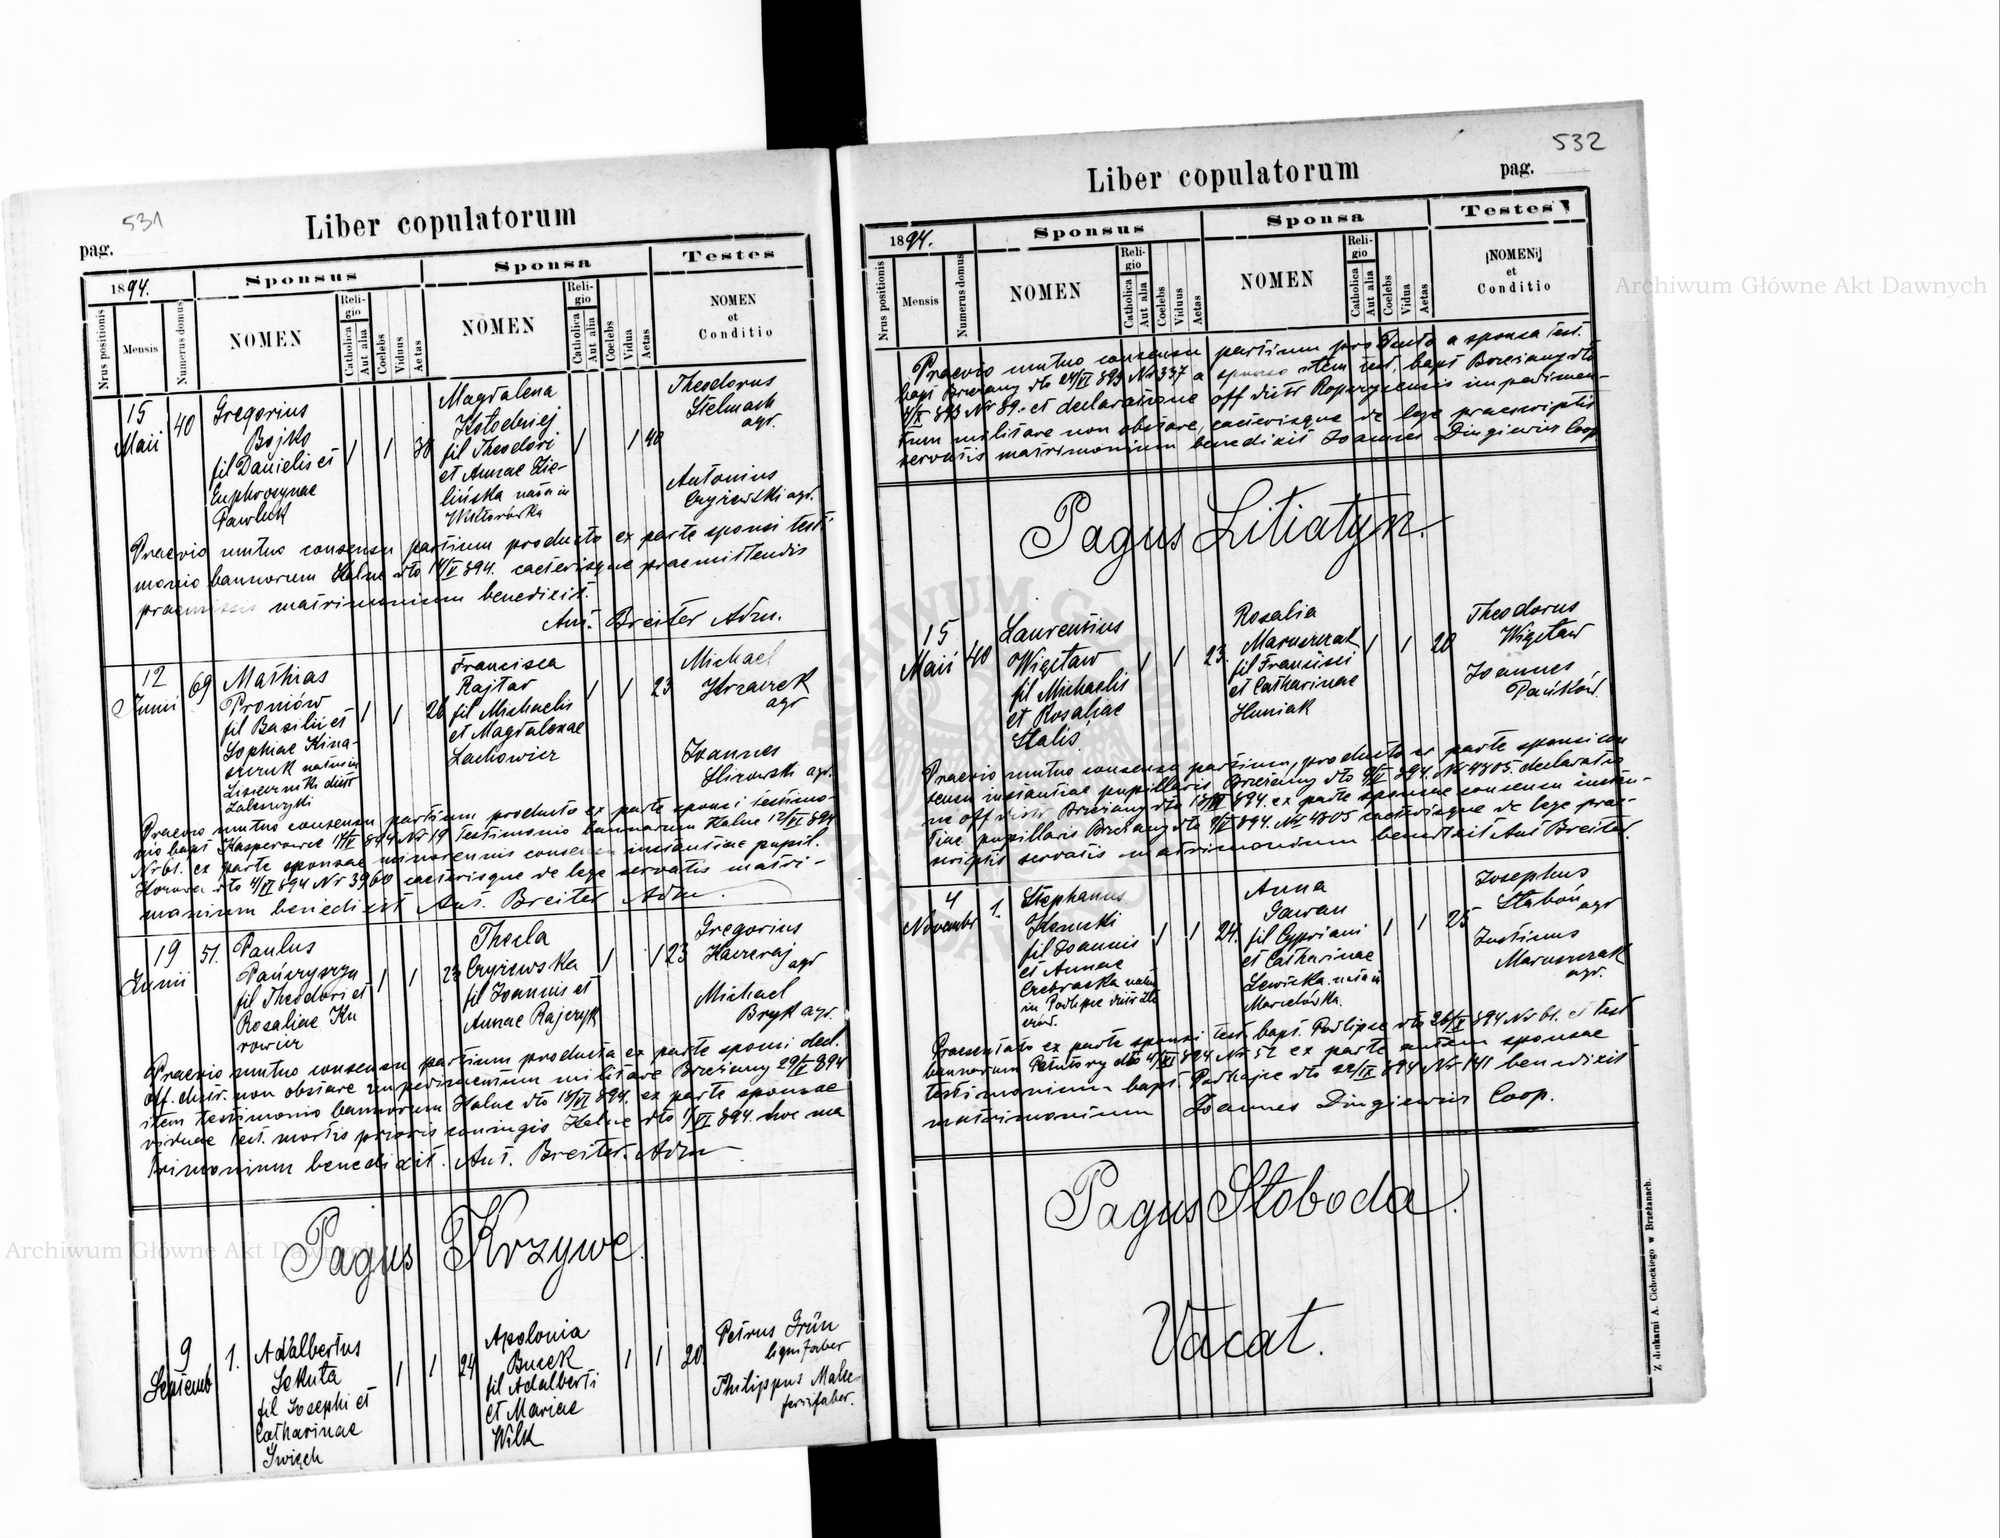 531
pag.
Liber copulatorum
1894.
Sponsus
Sponsa
Testes
Nrus positionis
Mensis
Numerus domus
NOMEN
Religio
Catholica
Aut alia
Coelebs
Viduus
Aetas
NOMEN
Religio
Catholica
Aut alia
Coelebs
Vidua
Aetas
NOMEN
et
Conditio
15
Maii
40
Gregorius
Bojko
fil Danielis et
Euphrosynae
Pawluk
1 1 38
Magdalena
Kołodziej
fil Theodori
et Annae Zie-
lińska nata in
Wiktorówka
1 1 40
Theodorus
Stelmach
agr.
Antonius
Czyżewski agr.
Praevio mutuo consensu partium producto ex parte sponsi testi
monio bannorum Halne dto 14/V 894. caeterisque praemittendis
praemissis matrimonium benedixit.
Ant. Breiter Adm.
12
Junii
69
Mathias
Proniów
fil Basilii et
Sophiae Kina-
szczuk natus in
Lisieczniki distr
Zaleszczyki
1 1 26
Francisca
Rajtar
fil Michaelis
et Magdalenae
Lachowicz
1 1 23
Michael
Krzaczek
agr
Joannes
Slizowski agr.
Praevio mutuo consensu partium producto ex parte sponsi testimo-
nio bapt Kasperowce 17/V 894 Nr 19 testimonio bannorum Halne 12/VI 894
Nr 61. ex parte sponsae minorennis consensu instantiae pupil.
Kozowa dto 4/VI 894 Nr 3960 caeterisque de lege servatis matri-
monium benedixit Ant. Breiter Adm.
19
Junii
51.
Paulus
Pańczyszyn
fil Theodori et
Rosaliae Ku
rowicz
1 1 23
Thecla
Czyżewska
fil Joannis et
Annae Rajczyk
1 1 23
Gregorius
Haczraj
agr
Michael
Bryk agr.
Praevio mutuo consensu partium producta ex parte sponsi decl.
off. distr. non obstare impedimentum militare Brzeżany 29/V 894
item testimonio bannorum Halne dto 18/VI 894. ex parte sponsae
viduae test. mortis prioris coniugis Halne dto 1/VI 894. hoc ma
trimonium benedixit. Ant. Breiter. Adm
Pagus Krzywe.
9
Septemb
1.
Adalbertus
Sekuta
fil Josephi et
Catharinae
Święch
1 1 24
Apolonia
Bucek
fil Adalberti
et Mariae
Wilk
1 1 20.
Petrus Grün
lignifaber
Philippus
ferrifaber.
532
Liber copulatorum
pag.
1894.
Sponsus
Sponsa
Testes
Nrus positionis
Mensis
Numerus domus
NOMEN
Religio
Catholica
Aut alia
Coelebs
Viduus
Aetas
NOMEN
Religio
Catholica
Aut alia
Coelebs
Vidua
Aetas
NOMEN
et
Conditio
Praevio mutuo consensu partium producto a sponsa test.
bapt Brzeżany dto 24/VI 893 Nr 337 a sponso item test. bapt Brzeżany dto
4/X 893 Nr 89. et declaratione off distr Ropczycensis impedimen-
tum militare non obstare, caeterisque de lege praescriptis
servatis matrimonium benedixit Joannes Dingiewicz Coop
Pagus Litiatyn.
15
Maii
40
Laurentius
Więcław
fil Michaelis
et Rosaliae
Stalis
1 1 23.
Rosalia
Maruszczak
fil Francisci
et Catharinae
Huniak
1 1 20
Theodorus
Więcław
Joannes
Pańków
Praevio mutuo consensu partium, producto ex parte sponsi con
sensu instantiae pupillaris Brzeżany dto 9/V 894. Nr 4805. declaratio
ne off distr. Brzeżany dto 13/III 894. ex parte sponsae consensu instan-
tiae pupillaris Brzeżany dto 9/V 894. Nr 4805 caeterisque de lege prae-
scriptis servatis matrimonium benedixit Ant Breiter.
4
Novembr
1.
Stephanus
fil Joannis
et Annae
Czebraska natus
in Podlipce distr Zło
czów.
1 1 24.
Anna
Gawan
fil Cypriani
et Catharinae
Lewicka nata in
Marcelówka.
1 1 25
Josephus
Słaboń agr
Justinus
Maruszczak
agr.
Praesentato ex parte sponsi test. bapt. Podlipce dto 26/X 894 Nr 61. et test
bannorum dto 4/XI 894 Nr 52 ex parte autem sponsae
testimonium bapt. Podhajce dto 22/IX 894 Nr 141 benedixit
matrimonium Joannes Dingiewicz Coop.
Pagus Słoboda.
Vacat.
Z drukarni A. Ciehockiego w Brzeżanach.
Archiwum Główne Akt Dawnych
Archiwum Główne Akt Dawnych